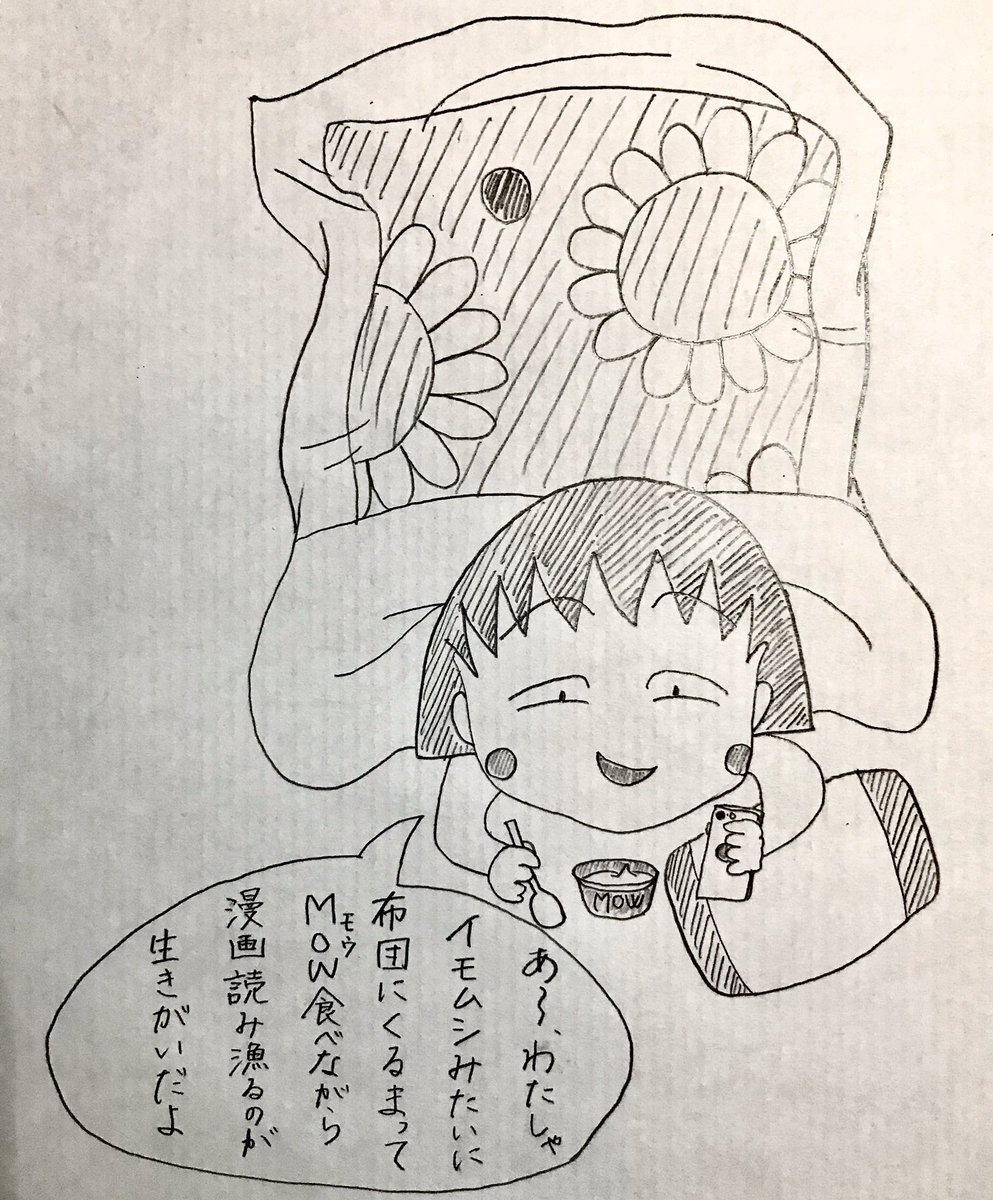 あ〜、わたしゃ
イモムシみたいに
布団にくるまって
MOW食べながら
モウ
漫画読み漁るのが
生きがいだよ
MOW